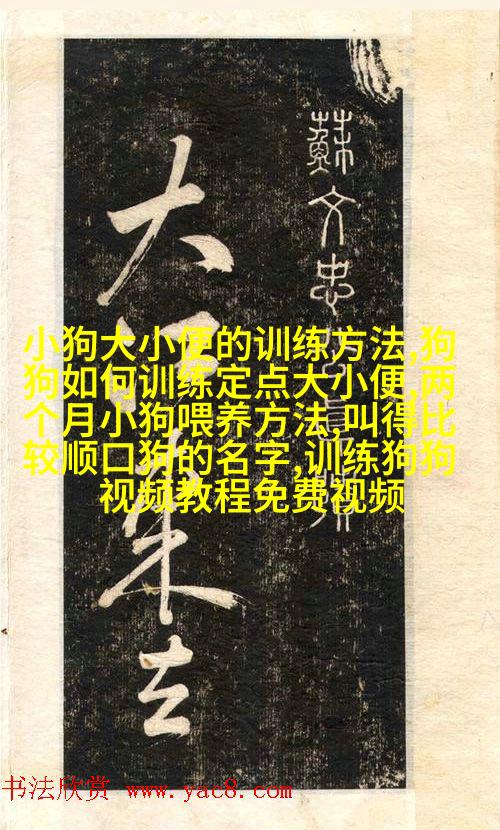 蘇文忠
大江東去
小狗大小便的训练方法,狗
狗如何训练定点大小便,两
个月小狗喂养方法,叫得比
较顺口狗的名字,训练狗狗
视频教程免费视频
书法欣赏 www.yac8.com